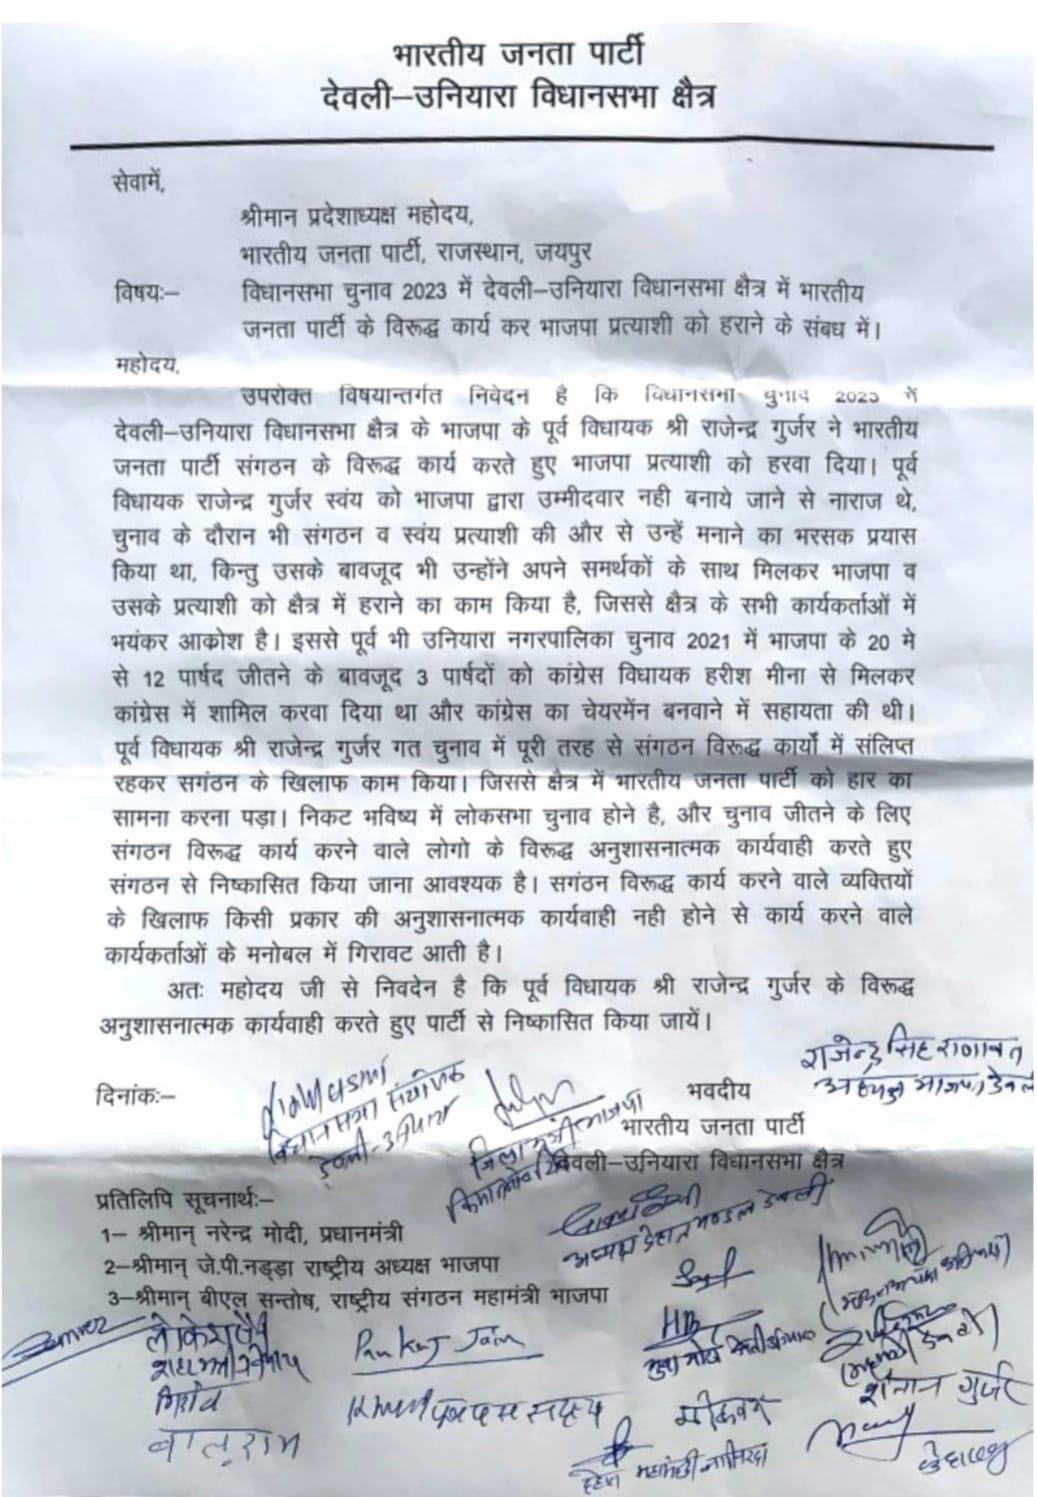 भारतीय जनता पार्टी
देवली–उनियारा विधानसभा क्षैत्र
सेवामें,
श्रीमान प्रदेशाध्यक्ष महोदय,
भारतीय जनता पार्टी, राजस्थान, जयपुर
विषयः– विधानसभा चुनाव 2023 में देवली–उनियारा विधानसभा क्षैत्र में भारतीय
जनता पार्टी के विरूद्ध कार्य कर भाजपा प्रत्याशी को हराने के संबध में।
महोदय,
उपरोक्त विषयान्तर्गत निवेदन है कि विधानसभा चुनाव 2023 में
देवली–उनियारा विधानसभा क्षैत्र के भाजपा के पूर्व विधायक श्री राजेन्द्र गुर्जर ने भारतीय
जनता पार्टी संगठन के विरूद्ध कार्य करते हुए भाजपा प्रत्याशी को हरवा दिया। पूर्व
विधायक राजेन्द्र गुर्जर स्वंय को भाजपा द्वारा उम्मीदवार नही बनाये जाने से नाराज थे,
चुनाव के दौरान भी संगठन व स्वंय प्रत्याशी की और से उन्हें मनाने का भरसक प्रयास
किया था, किन्तु उसके बावजूद भी उन्होंने अपने समर्थकों के साथ मिलकर भाजपा व
उसके प्रत्याशी को क्षैत्र में हराने का काम किया है, जिससे क्षैत्र के सभी कार्यकर्ताओं में
भयंकर आक्रोश है। इससे पूर्व भी उनियारा नगरपालिका चुनाव 2021 में भाजपा के 20 मे
से 12 पार्षद जीतने के बावजूद 3 पार्षदों को कांग्रेस विधायक हरीश मीना से मिलकर
कांग्रेस में शामिल करवा दिया था और कांग्रेस का चेयरमेंन बनवाने में सहायता की थी।
पूर्व विधायक श्री राजेन्द्र गुर्जर गत चुनाव में पूरी तरह से संगठन विरूद्ध कार्यो में संलिप्त
रहकर सगंठन के खिलाफ काम किया। जिससे क्षैत्र में भारतीय जनता पार्टी को हार का
सामना करना पड़ा। निकट भविष्य में लोकसभा चुनाव होने है, और चुनाव जीतने के लिए
संगठन विरूद्ध कार्य करने वाले लोगो के विरूद्ध अनुशासनात्मक कार्यवाही करते हुए
संगठन से निष्कासित किया जाना आवश्यक है। सगंठन विरूद्ध कार्य करने वाले व्यक्तियों
के खिलाफ किसी प्रकार की अनुशासनात्मक कार्यवाही नही होने से कार्य करने वाले
कार्यकर्ताओं के मनोबल में गिरावट आती है।
अतः महोदय जी से निवदेन है कि पूर्व विधायक श्री राजेन्द्र गुर्जर के विरूद्ध
अनुशासनात्मक कार्यवाही करते हुए पार्टी से निष्कासित किया जायें।
राजेन्द्र सिंह राणावत
अध्यक्ष भाजपा देवली
दिनांकः– भवदीय
विधानसभा संयोजक
देवली-उनियारा
जिला मंत्री भाजपा
भारतीय जनता पार्टी
देवली–उनियारा विधानसभा क्षैत्र
अध्यक्ष देहात मण्डल देवली
प्रतिलिपि सूचनार्थः–
1– श्रीमान् नरेन्द्र मोदी, प्रधानमंत्री
2–श्रीमान् जे.पी.नड्डा राष्ट्रीय अध्यक्ष भाजपा
3–श्रीमान् बीएल सन्तोष, राष्ट्रीय संगठन महामंत्री भाजपा
Pankaj Jain
शैतान गुर्जर
बालूराम